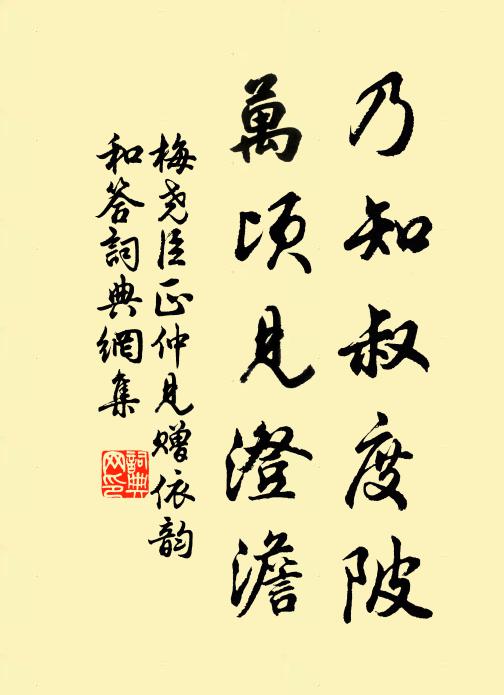 乃知叔度陂
萬頃見澄澹
梅尧臣正仲見贈依韵
和答詞典網集
詞典
网印